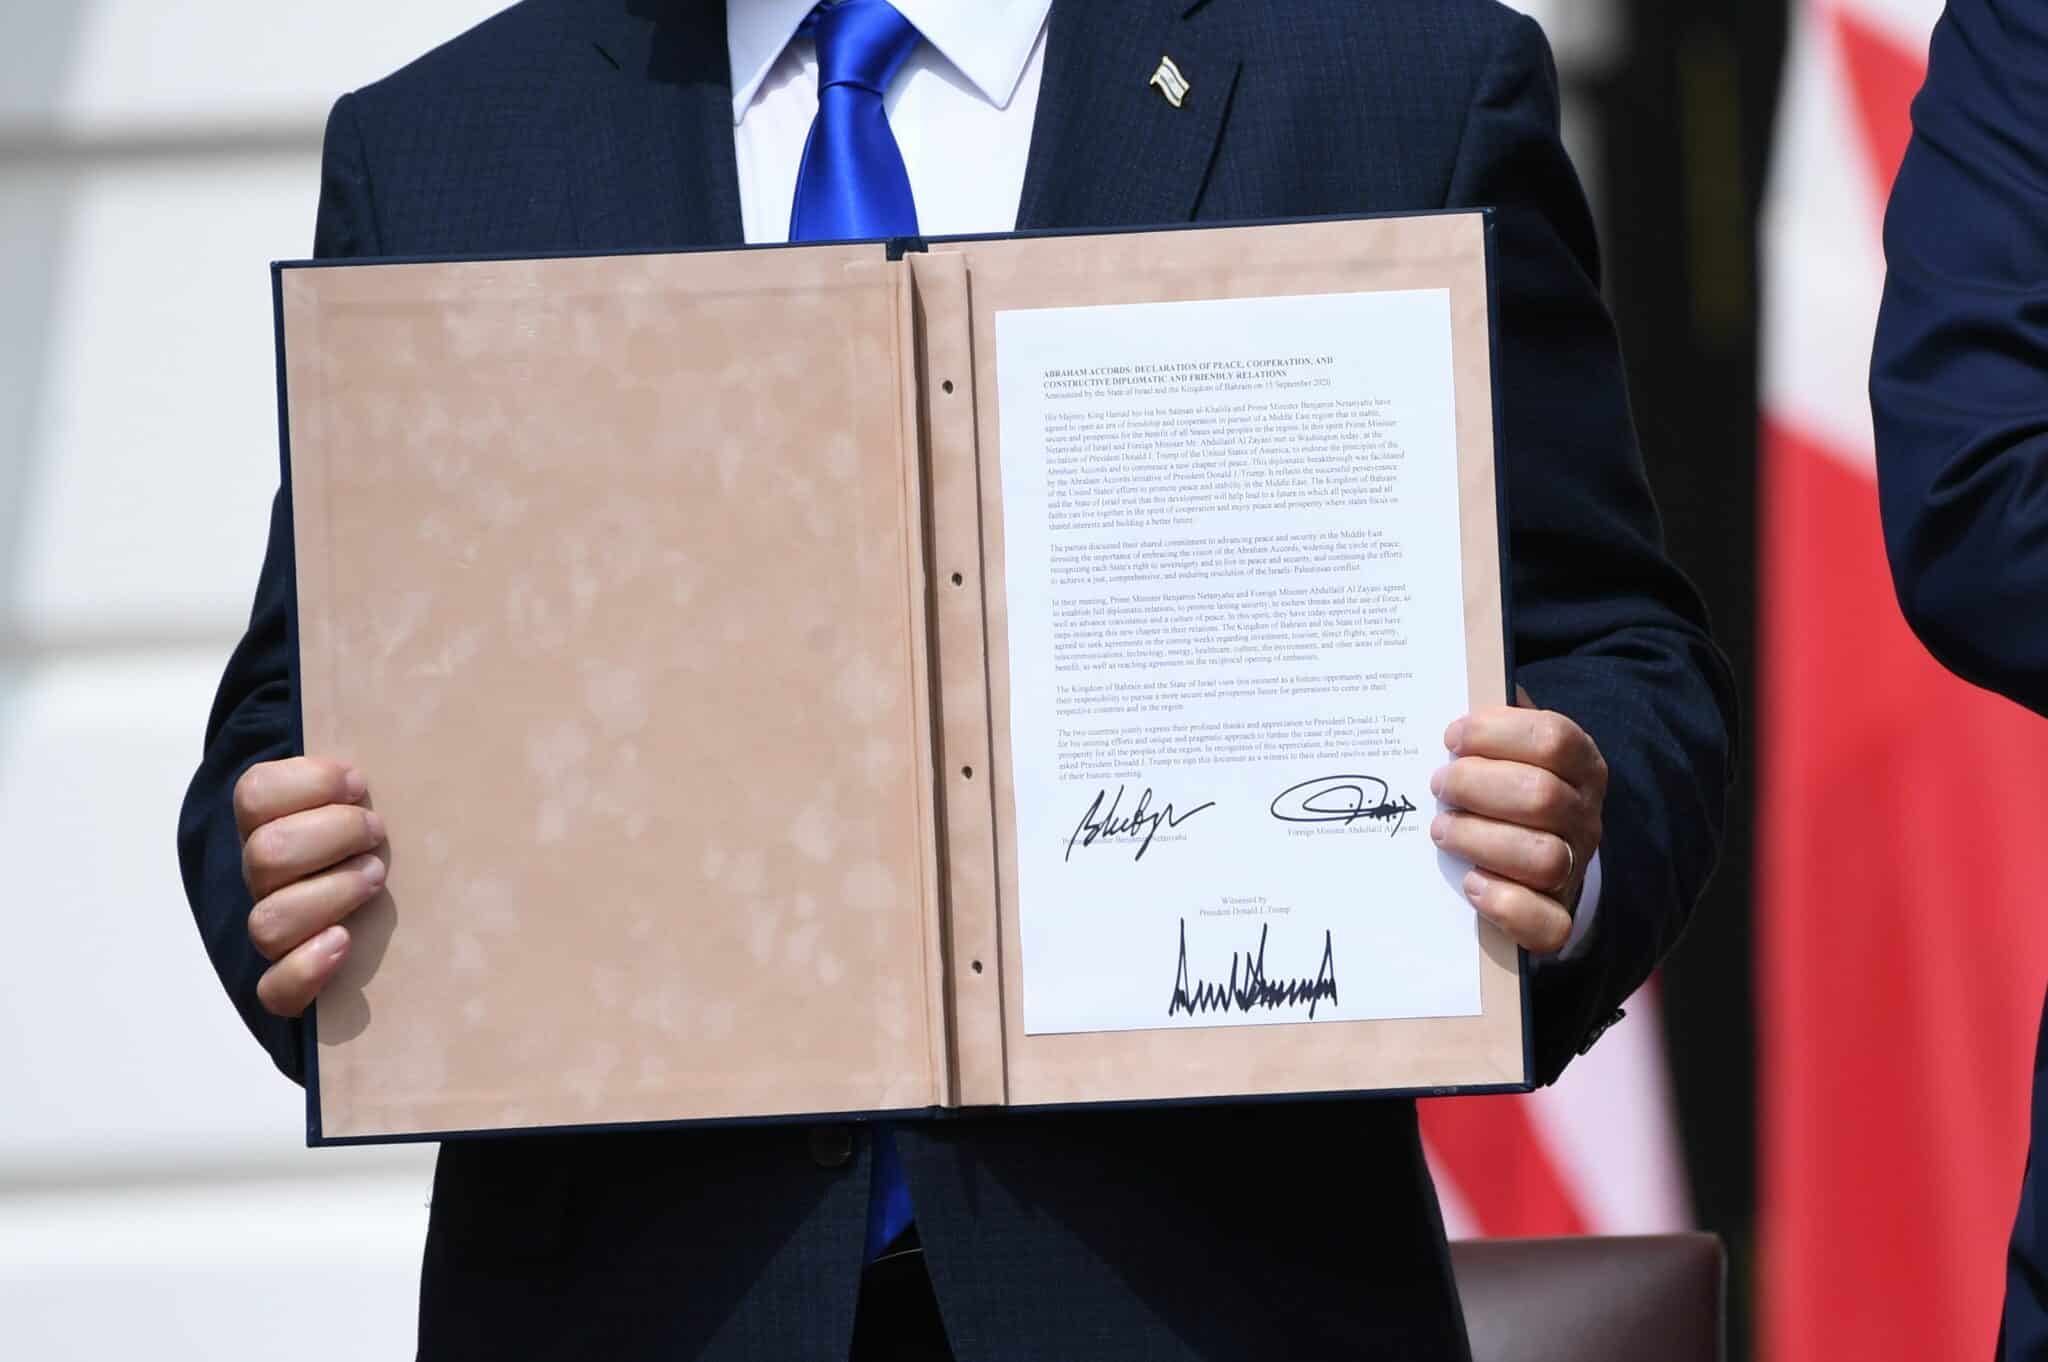 ABRAHAM ACCORDS: DECLARATION OF PEACE, COOPERATION, AND
CONSTRUCTIVE DIPLOMATIC AND FRIENDLY RELATIONS
Announced by the State of Israel and the Kingdom of Bahrain on 15 September 2020
His Majesty King Hamad bin Isa bin Salman al-Khalifa and Prime Minister Benjamin Netanyahu have
agreed to open an era of friendship and cooperation in pursuit of a Middle East region that is stable,
secure and prosperous for the benefit of all States and peoples in the region. In this spirit Prime Minister
Netanyahu of Israel and Foreign Minister Mr. Abdullatif Al Zayani met in Washington today, at the
invitation of President Donald J. Trump of the United States of America, to endorse the principles of the
Abraham Accords and to commence a new chapter of peace. This diplomatic breakthrough was facilitated
by the Abraham Accords initiative of President Donald J. Trump. It reflects the successful perseverance
of the United States' efforts to promote peace and stability in the Middle East. The Kingdom of Bahrain
and the State of Israel trust that this development will help lead to a future in which all peoples and all
faiths can live together in the spirit of cooperation and enjoy peace and prosperity where states focus on
shared interests and building a better future.
The parties discussed their shared commitment to advancing peace and security in the Middle East
stressing the importance of embracing the vision of the Abraham Accords, widening the circle of peace,
recognizing each State's right to sovereignty and to live in peace and security, and continuing the efforts
to achieve a just, comprehensive, and enduring resolution of the Israeli-Palestinian conflict.
In their meeting, Prime Minister Benjamin Netanyahu and Foreign Minister Abdullatif Al Zayani agreed
to establish full diplomatic relations, to promote lasting security, to eschew threats and the use of force, as
well as advance coexistence and a culture of peace. In this spirit, they have today approved a series of
steps initiating this new chapter in their relations. The Kingdom of Bahrain and the State of Israel have
agreed to seek agreements in the coming weeks regarding investment, tourism, direct flights, security,
telecommunications, technology, energy, healthcare, culture, the environment, and other areas of mutual
benefit, as well as reaching agreement on the reciprocal opening of embassies.
The Kingdom of Bahrain and the State of Israel view this moment as a historic opportunity and recognize
their responsibility to pursue a more secure and prosperous future for generations to come in their
respective countries and in the region.
The two countries jointly express their profound thanks and appreciation to President Donald J. Trump
for his untiring efforts and unique and pragmatic approach to further the cause of peace, justice and
prosperity for all the peoples of the region. In recognition of this appreciation, the two countries have
asked President Donald J. Trump to sign this document as a witness to their shared resolve and as the host
of their historic meeting.
Prime Minister Benjamin Netanyahu
Foreign Minister Abdullatif Al Zayani
Witnessed by
President Donald J. Trump